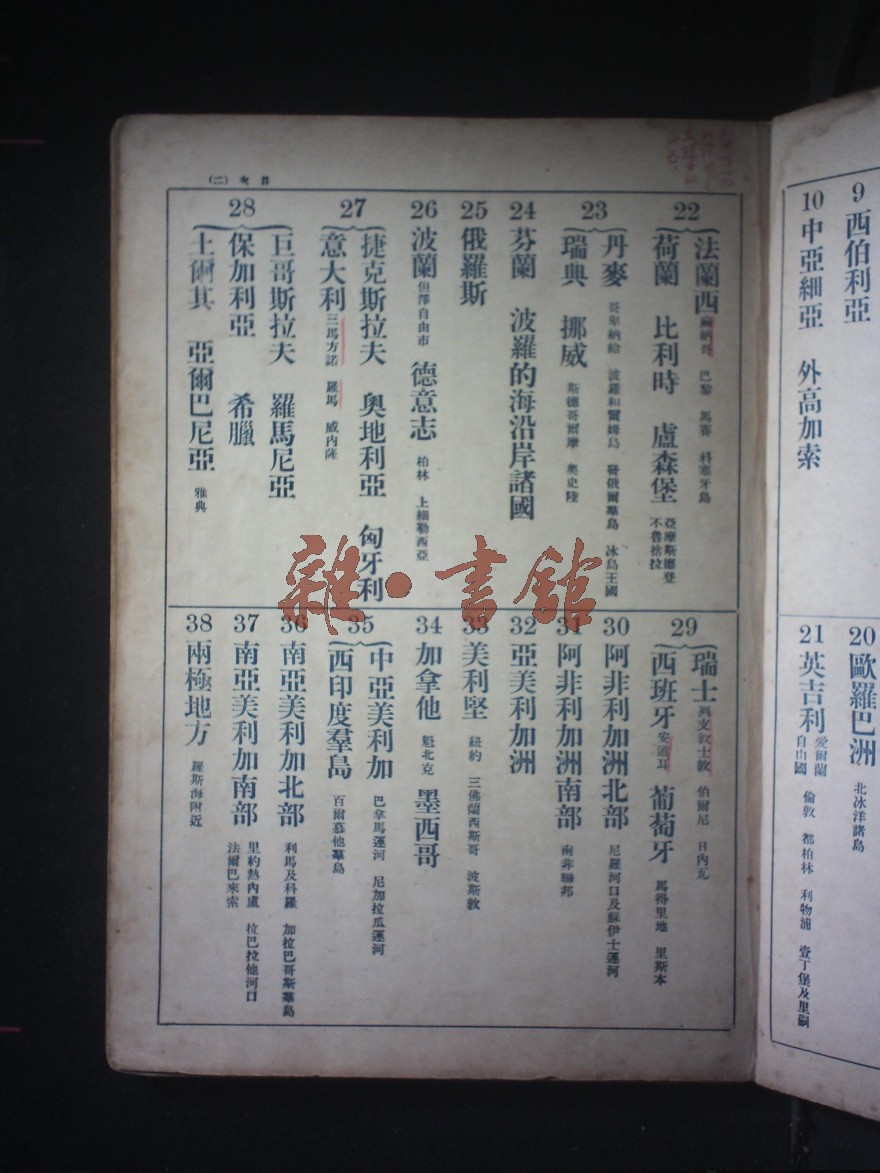 9 西伯利亞
10 中亞細亞 外高加索
20 歐羅巴洲 北冰洋諸島
21 英吉利 愛爾蘭自由國 倫敦 都柏林 利物浦 壹丁堡及里嗣
目次 (二)
22
法蘭西 摩納哥 巴黎 馬賽 科塞牙島
荷蘭 比利時 盧森堡 亞摩斯德登 不魯捨拉
23
丹麥 哥卑納給 波羅和爾姆島 發俄爾羣島 冰島王國
瑞典 挪威 斯德哥爾摩 奧史陸
24 芬蘭 波羅的海沿岸諸國
25 俄羅斯
26 波蘭 但澤自由市 德意志 柏林 上細勒西亞
27
捷克斯拉夫 奧地利亞 匈牙利
意大利 三馬方諾 羅馬 威內薩
28
巨哥斯拉夫 羅馬尼亞
保加利亞 希臘
土爾其 亞爾巴尼亞 雅典
29
瑞士 列支敦士敦 伯爾尼 日內瓦
西班牙 安道耳 葡萄牙 馬得里地 里斯本
30 阿非利加洲北部 尼羅河口及蘇伊士運河
31 阿非利加洲南部 南非聯邦
32 亞美利加洲
33 美利堅 紐約 三佛蘭西斯哥 波斯敦
34 加拿他 魁北克 墨西哥
35
中亞美利加 巴拿馬運河 尼加拉瓜運河
西印度羣島 百爾慕他羣島
36 南亞美利加北部 利馬及科羅 加拉巴哥斯羣島
37 南亞美利加南部 里約熱內盧 拉巴拉他河口 法爾巴來索
38 兩極地方 羅斯海附近
雜·書館